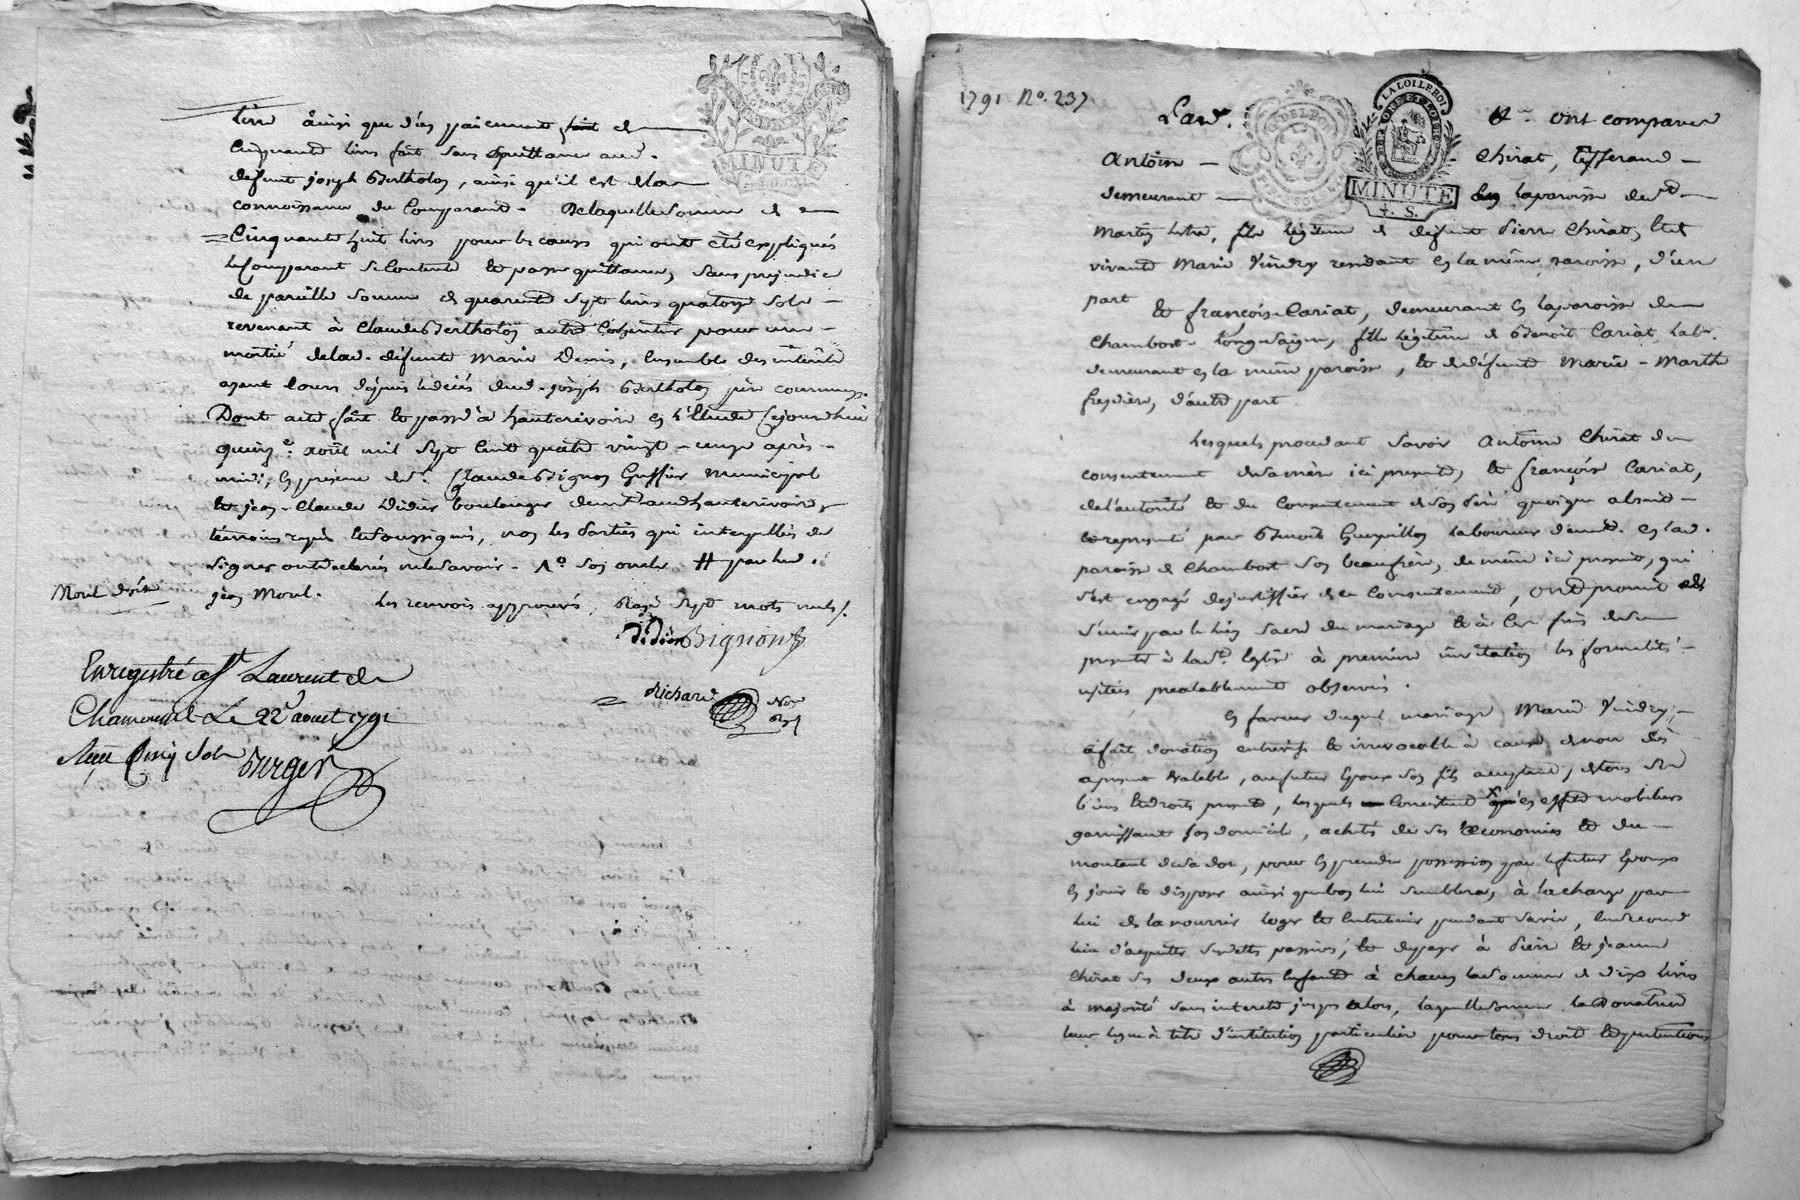 livre ainsi que d'un paiement fait de
Cinquante livres fait sans quittance aud.
defunt joseph Bertholon, ainsi qu'il est de la
connoissance du Comparand. De laquelle somme de
Cinquante huit livres pour les causes qui ont été expliqués
le Comparant se Contente et passe quittance, sans prejudice
de pareille somme de quarente sept livres quatorze sols
revenant à Claude Bertholon autre Coheritier pour une
moitié de lad. défunte Marie Denis, Ensemble des interets
ayant cours depuis le décès dud. joseph Bertholon père commun
Dont acte fait et passé à hauterivoire en l'Etude Cejourd'hui
quinze août mil sept Cent quatre vingt - onze après-
midi, En présence de Sr. Claude Bignon Greffier municipal
et jean-Claude Didier boulanger demt. aud hauterivoire,
témoins requis et soussignés, non les Parties qui interpellés de
signer ont declarés ne le savoir.
jean Morel.
Les renvois approuvés, Rayé Sept mots nuls.
Morel
Didier Bignon
Richard Nore
Enregistré a St Laurent de
Chamousset Le 22 aoust 1791
Reçu Cinq Sols
Berger
MINUTE
1791 No. 237
LA LOI LE ROI
MINUTE
4. S.
Lad. ont comparus
Antoine Chirat, tisserand
demeurant en la paroisse de St
Martin lestra, fils légitime de defunt Pierre Chirat, et de
vivante Marie Vindry residant en la même paroisse, d'une
part
Et françoise Cariat, demeurant en la paroisse de
Chambost-Longesaigne, fille légitime de Benoit Cariat labr.
demeurant en la même paroisse, et de défunte Marie-Marthe
d'autre part.
Lesquels procedant savoir Antoine Chirat du
consentement de sa mère ici presente, et françoise Cariat,
de l'autorité et du Consentement de son Père quoique absent
et represénté par Benoit laboureur demt. en lad.
paroisse de Chambost son beaufrère, de même ici present, qui
s'est engagé de justiffier de ce Consentement, ont promit
s'unir par le lien sacré du mariage et à Ces fins de se
presenter à la Ste. Eglise à premiere invitation les formalités
usitées prealablement observées.
En faveur duquel mariage, Marie Vindry,
a fait donation entrevifs et irrevocable à cause de noces dès
apresent valable, au futur Epoux son fils acceptant, de tous ses
biens et droits presents, lesquels Consistent en effets mobiliers
garnissant son domicile, achetés de ses économies et du
montant de sa dot, pour En prendre possession par le futur Epoux
En jouir et disposer ainsi que bon lui semblera, à la charge par
lui de la nourrir loger et Entretenir pendant sa vie, En second
lieu d'acquitter ses dettes passives, et de payer à Pierre et jeanne
Chirat ses deux autres Enfants à chacun la somme de dix livres
à majorité sans interets jusqu'alors, laquelle somme la Donatrice
leur legue à titre d'institution particulière pour tous droits et prétentions